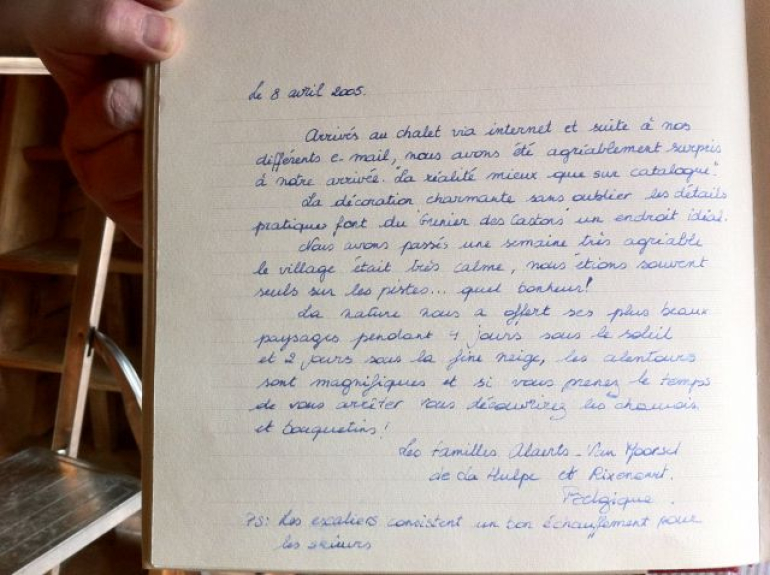 Le 8 avril 2005.
Arrivés au chalet via internet et suite à nos
différents e-mail, nous avons été agréablement surpris
à notre arrivée. "La réalité mieux que sur catalogue".
La décoration charmante sans oublier les détails
pratiques font du "Grenier des Castors" un endroit idéal.
Nous avons passés une semaine très agréable
le village était très calme, nous étions souvent
seuls sur les pistes... quel bonheur!
La nature nous a offert ses plus beaux
paysages pendant 4 jours sous le soleil
et 2 jours sous la fine neige, les alentours
sont magnifiques et si vous prenez le temps
de vous arrêter vous découvrirez les chamois
et bouquetins!
Les familles - Van
de La Hulpe et Rixensart.
Belgique.
PS: Les escaliers consistent un bon échauffement pour
les skieurs